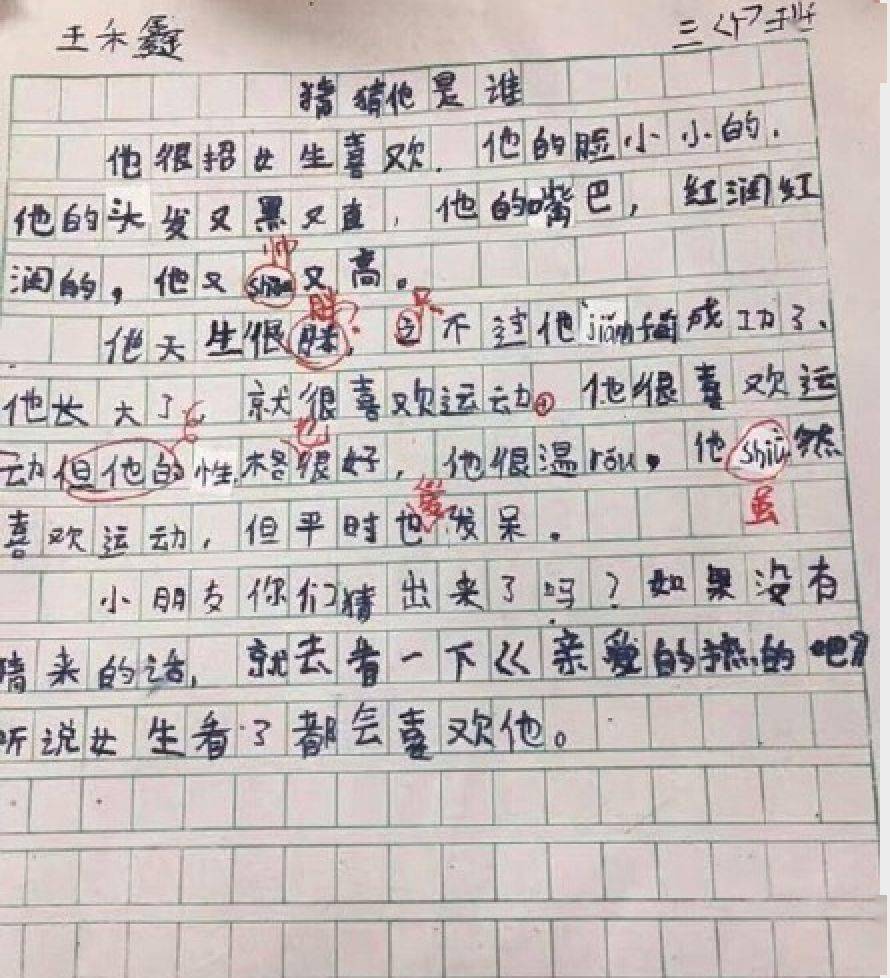 王禾鑫
猜猜他是谁
他很招女生喜欢. 他的脸小小的.
他的头发又黑又直, 他的嘴巴, 红润红
帅
润的, 他又shuai又高。
胖?
他天生很胖, 不过他jiǎn 成功了、
他长大了 就很喜欢运动。他很喜欢运
也
动但他的性格很好, 他很温róu。他shuī然
虽
喜欢运动, 但平时也发呆.
小朋友你们猜出来了吗? 如果没有
猜来的话, 就去看一下《亲爱的热的吧》
听说女生看了都会喜欢他。